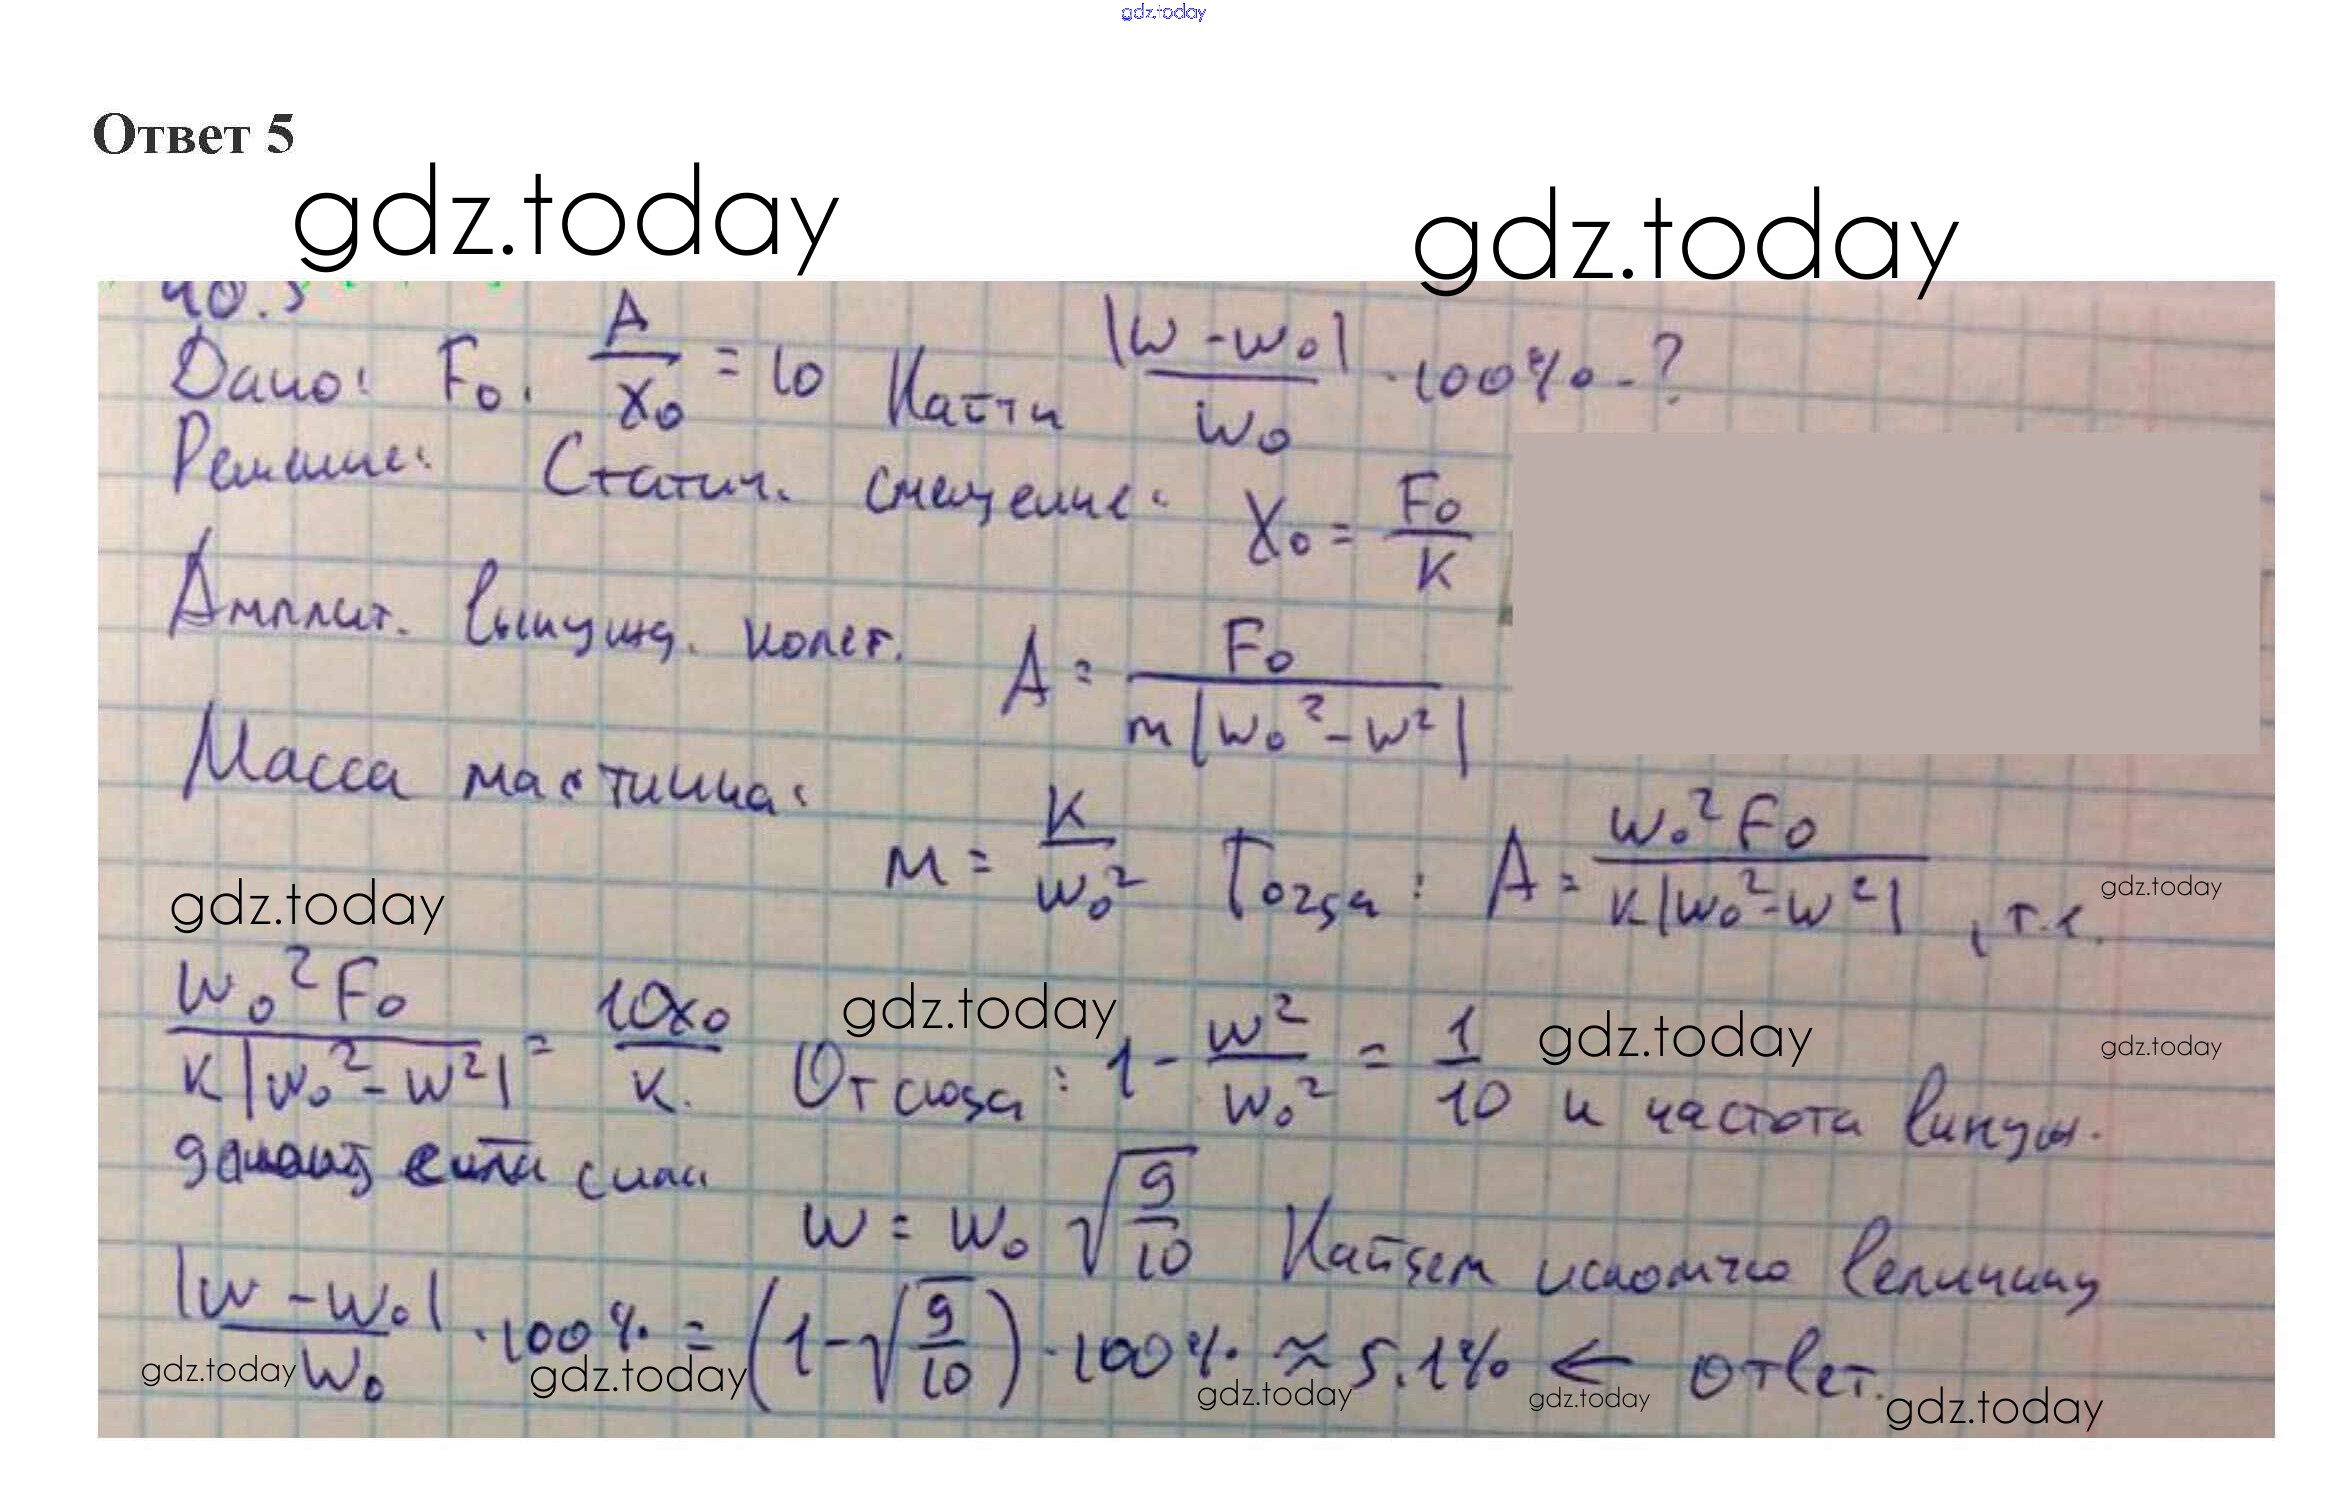 gdz.today
Ответ 5
gdz.today gdz.today
40.5
Дано: F₀, A/x₀ = 10 Найти |w - w₀|/w₀ · 100% - ?
Решение: Статич. смещение: X₀ = F₀/k
Амплит. вынужд. колеб. A = F₀/(m|w₀² - w²|)
Масса маятника: m = k/w₀² Тогда: A = w₀²F₀/(k|w₀² - w²|), т.к.
gdz.today gdz.today
w₀²F₀/(k|w₀² - w²|) = 10x₀/k. Отсюда: 1 - w²/w₀² = 1/10 и частота вынуж.
gdz.today gdz.today gdz.today
сила w = w₀ √(9/10) Найдем искомую величину
|w - w₀|/w₀ · 100% = (1 - √(9/10)) · 100% ≈ 5.1% ← ответ.
gdz.today gdz.today gdz.today gdz.today gdz.today